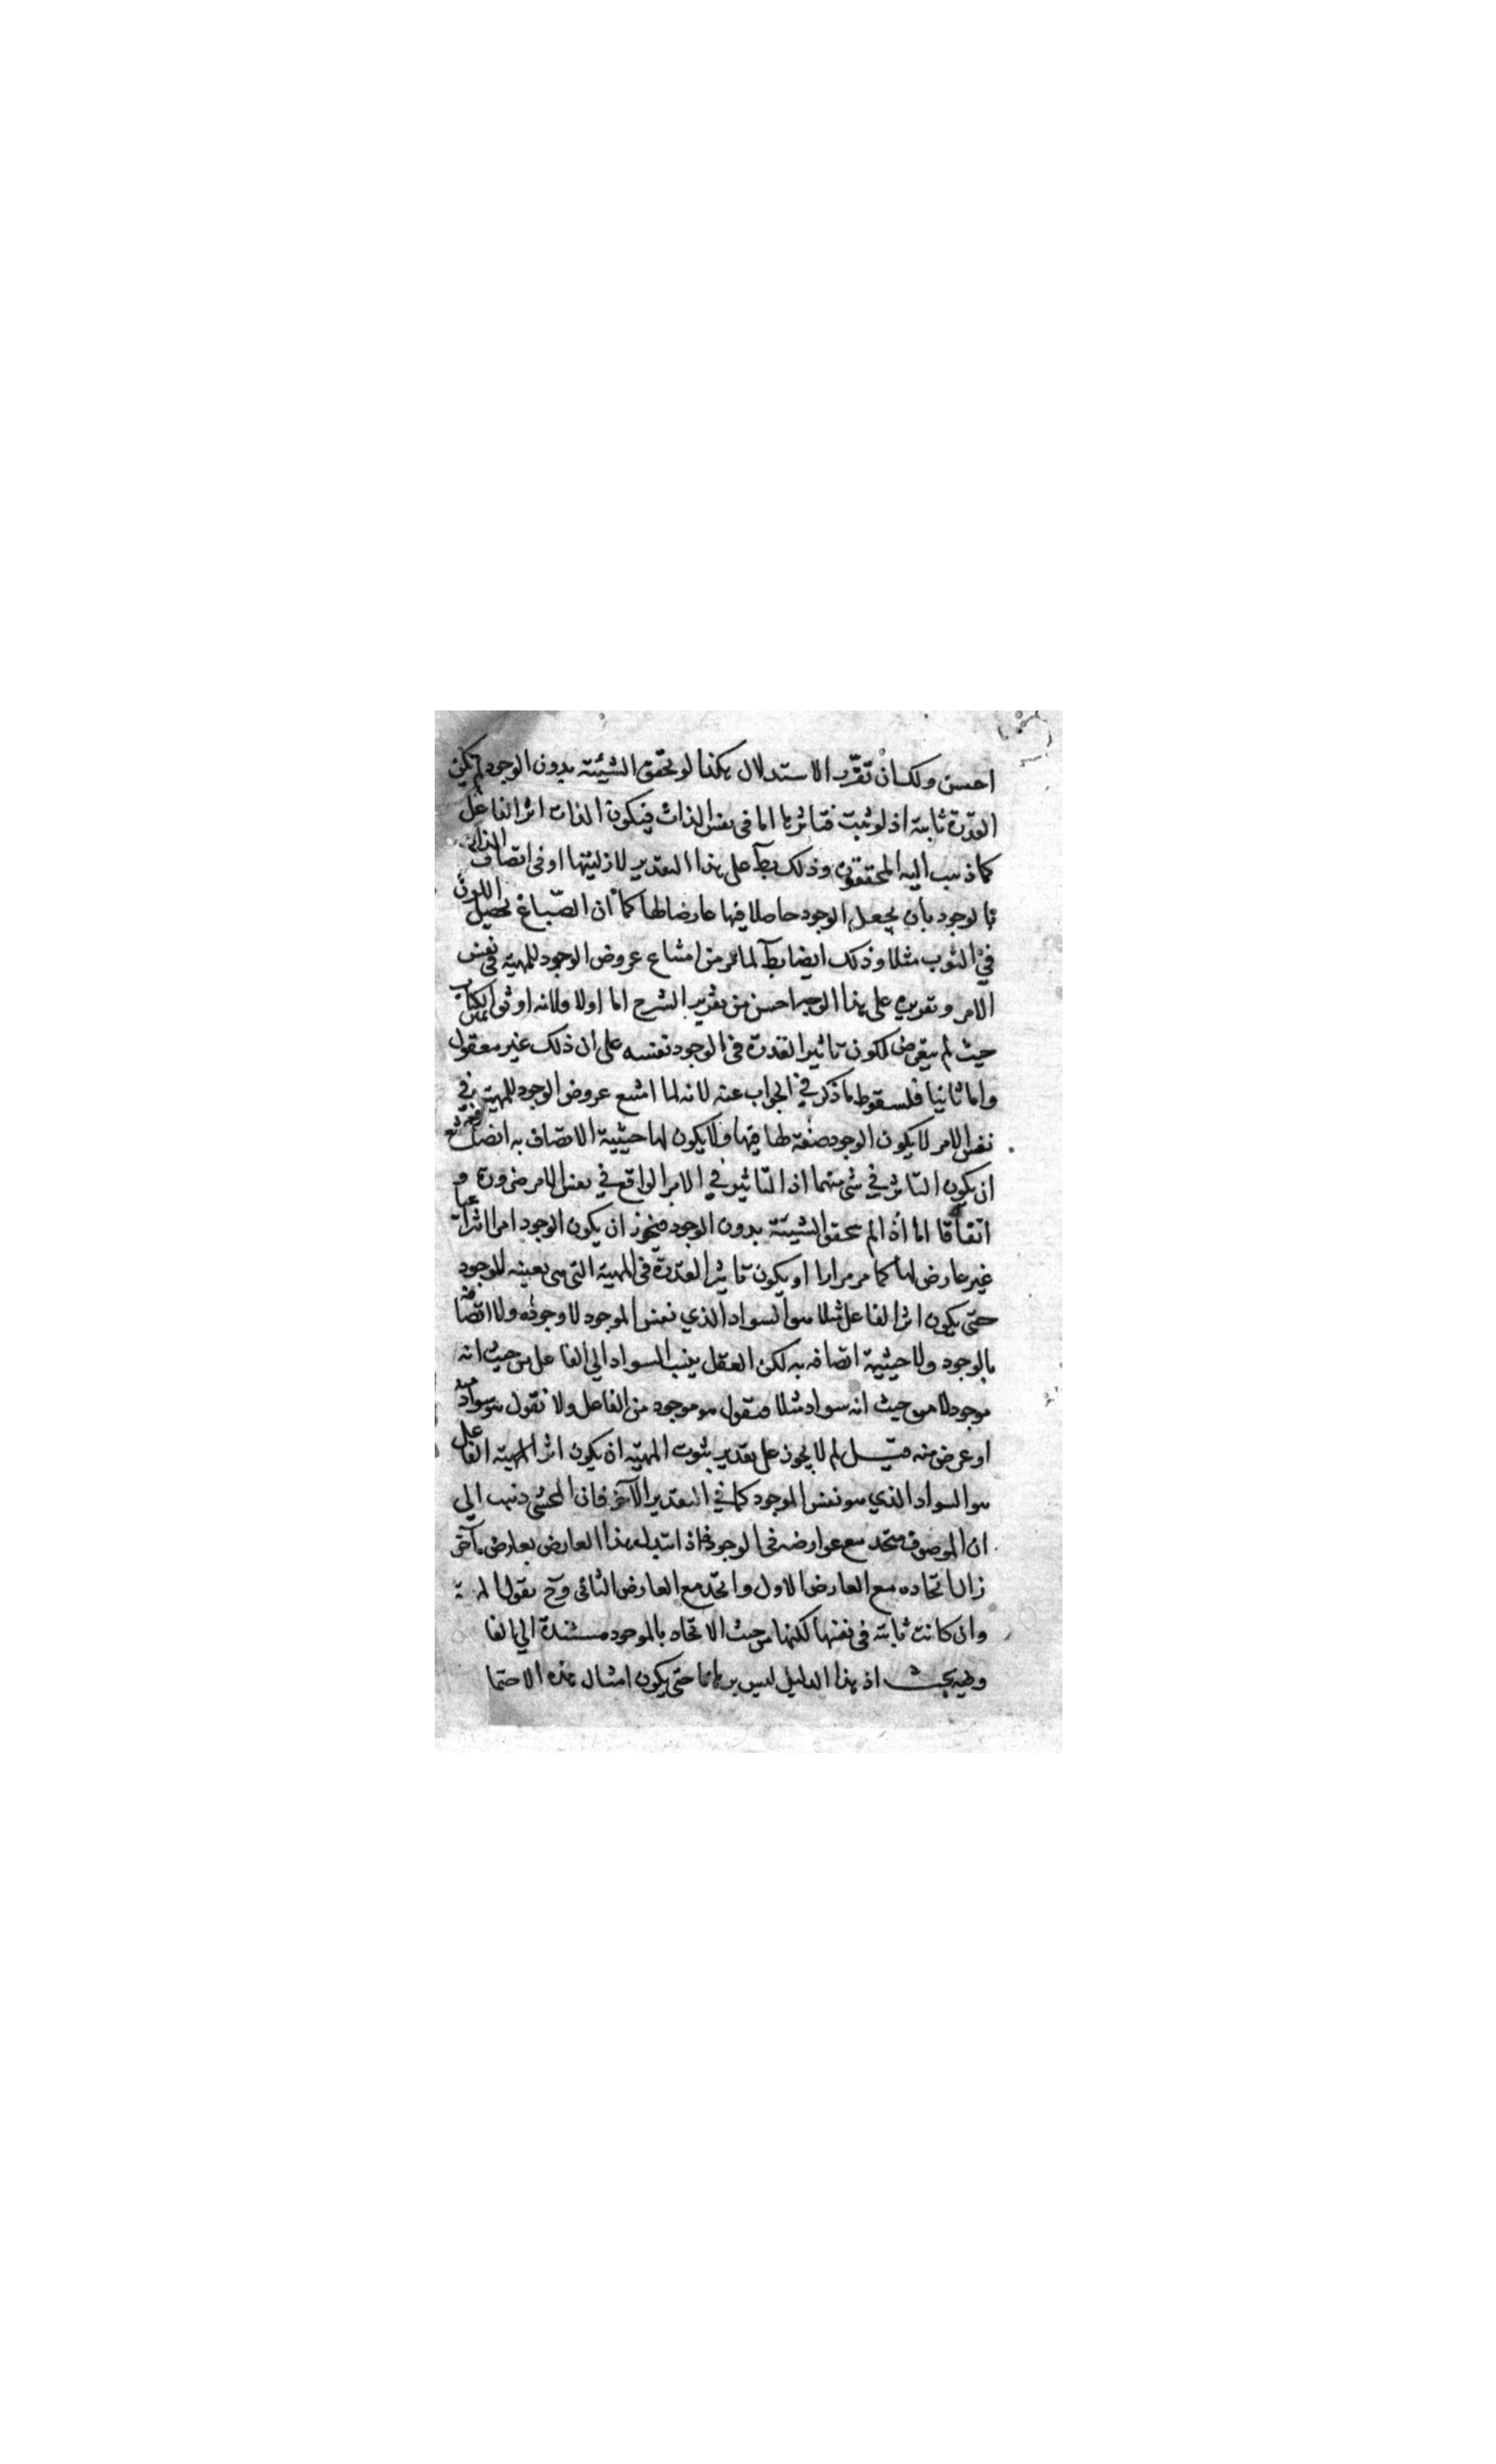 احسن ولك ان تقرر الاستدلال هكذا لو تحقق الشيئية بدون الوجود لم يكن
القدرة ثابتة اذ لو ثبت فتاثيرها اما في نفس الذات فيكون الذات اثر الفاعل
كما ذهب اليه المحققون وذلك بط على هذا التقدير لازليتها او في اتصاف الذات
بالوجود بان يجعل الوجود حاصلا فيها عارضا لها كما ان الصباغ يحصل اللون
في الثوب مثلا وذلك ايضا بط لما مر من امتناع عروض الوجود للمهية في نفس
الامر وتقريره على هذا الوجه احسن من تقرير الشرح اما اولا فلانه اوثق الكتاب
حيث لم يتعرض لكون تاثير القدرة في الوجود نفسه على ان ذلك غير معقول
واما ثانيا فلسقوط ما ذكر في الجواب عنه لانه لما امتنع عروض الوجود للمهية في
نفس الامر لا يكون الوجود صفة لها فيها ولا يكون لها حيثية الاتصاف به ايضا فيمتنع
ان يكون التاثير في شئ منهما اذ التاثير في الامر الواقع في نفس الامر ضرورة و
اتفاقا اما اذا لم يتحقق الشيئية بدون الوجود فيجوز ان يكون الوجود امرا
غير عارض لها كما مر مرارا او يكون تاثير القدرة في المهية التي هي بعينه الموجود
حتى يكون اثر الفاعل مثلا هو السواد الذي نفس الموجود لا وجوده ولا اتصافه
بالوجود ولا حيثية اتصافه به لكن العقل ينسب السواد الى الفاعل من حيث انه
موجود لا من حيث انه سواد مثلا فنقول هو موجود من الفاعل ولا نقول هو سواد منه
او عرض منه قيل لم لا يجوز على تقدير ثبوت المهية ان يكون اثر المهية الفاعل
هو السواد الذي هو نفس الموجود كما في التقدير الآخر فان المحشى ذهب الى
ان الموصوف متحد مع عوارضه في الوجود فاذا تبدل هذا العارض بعارض آخر
زال اتحاده مع العارض الاول واتحد مع العارض الثاني وح نقول
وان كانت ثابتة في نفسها لكنها من حيث الاتحاد بالموجود مستندة الى الفا
وفيه بحث اذ هذا الدليل ليس برهانا حتى يكون امثال هذه الاحتما